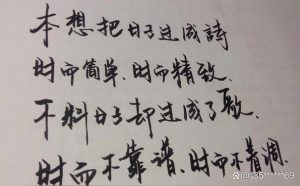 本想把日子过成詩
时而简单.时而精致.
不料日子却过成了歌.
时而不靠谱.时而不着调.
@r35******69